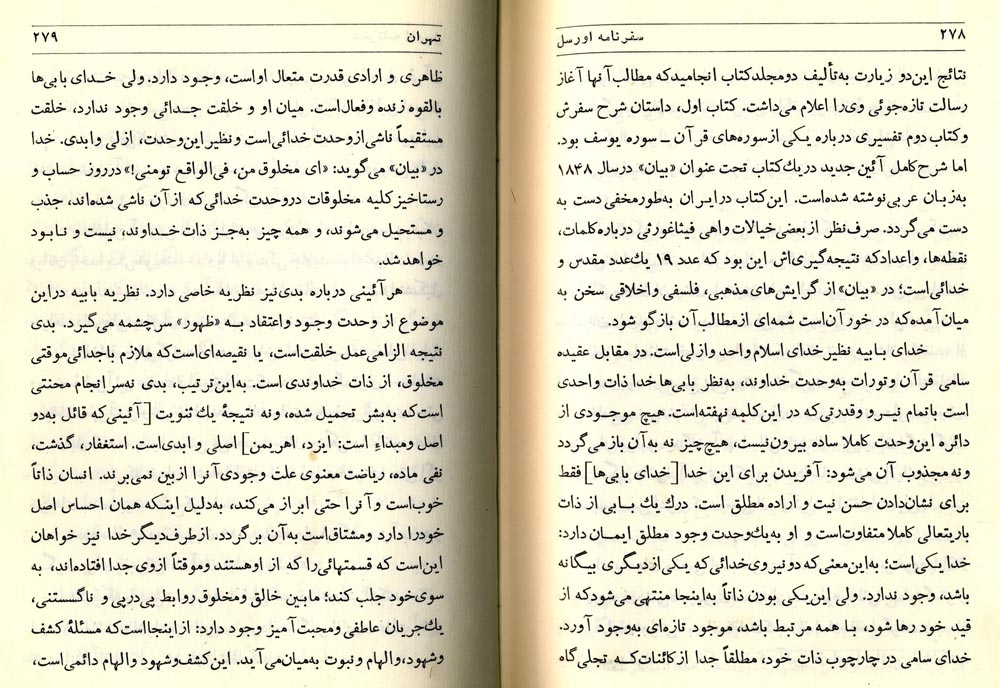 ۲۷۸
سفرنامه اورسل
نتائج این‌دو زیارت به‌تألیف دومجلدکتاب انجامیدکه مطالب آنها آغاز
رسالت تازه‌جوئی وی‌را اعلام می‌داشت. کتاب اول، داستان شرح سفرش
وکتاب دوم تفسیری درباره یکی ازسوره‌های قرآن ــ سوره یوسف بود.
اما شرح‌کامل آئین‌جدید دریك‌کتاب تحت عنوان «بیان» درسال ۱۸۴۸
به‌زبان عربی‌نوشته شده‌است. این‌کتاب درایران به‌طورمخفی دست به
دست می‌گردد. صرف‌نظر ازبعضی‌خیالات‌واهی فیثاغورثی درباره‌کلمات،
نقطه‌ها، واعدادکه نتیجه‌گیری‌اش این بود که عدد ۱۹ یك‌عدد مقدس و
خدائی‌است؛ در «بیان» از گرایش‌های مذهبی، فلسفی واخلاقی سخن به
میان‌آمده‌که در خور آن‌است شمه‌ای ازمطالب‌آن بازگو شود.
خدای بابیه نظیرخدای اسلام واحد وازلی‌است. در مقابل عقیده
سامی قرآن وتورات به‌وحدت خداوند، به‌نظر بابی‌ها خدا ذات واحدی
است باتمام نیرو وقدرتی‌که در این‌کلمه نهفته‌است. هیچ موجودی از
دائره این‌وحدت کاملا ساده بیرون‌نیست، هیچ‌چیز نه به‌آن بازمی‌گردد
ونه‌مجذوب آن می‌شود: آفریدن برای این خدا [خدای بابی‌ها] فقط
برای نشان‌دادن حسن نیت و اراده مطلق است. درك یك بابی از ذات
باریتعالی کاملا متفاوت‌است و او به‌یك‌وحدت وجود مطلق ایمان‌دارد:
خدا یکی‌است؛ به‌این‌معنی‌که دونیروی‌خدائی‌که یکی‌ازدیگری بیگانه
باشد، وجود ندارد. ولی این‌یکی بودن ذاتاً به‌اینجا منتهی می‌شودکه از
قید خود رها شود، با همه مرتبط باشد، موجود تازه‌ای به‌وجود آورد.
خدای سامی در چارچوب ذات خود، مطلقاً جدا ازکائنات‌کـه تجلی‌گاه
تهران
۲۷۹
ظاهری و ارادی قدرت متعال اواست، وجود دارد. ولی خدای بابی‌ها
بالقوه زنده وفعال‌است. میان او و خلقت جدائی وجود ندارد، خلقت
مستقیماً ناشی‌ازوحدت خدائی‌است ونظیر این‌وحدت، ازلی وابدی. خدا
در «بیان» می‌گوید: «ای مخلوق من، فی‌الواقع تومنی!» درروز حساب و
رستاخیزکلیه مخلوقات دروحدت خدائی‌که ازآن ناشی شده‌اند، جذب
و مستحیل می‌شوند، و همه چیز به‌جز ذات خداوند، نیست و نابود
خواهد شد.
هرآئینی درباره بدی‌نیز نظریه خاصی دارد. نظریه بابیه دراین
موضوع از وحدت وجود واعتقاد بـه «ظهور» سرچشمه می‌گیرد. بدی
نتیجه الزامی‌عمل خلقت‌است، یا نقیصه‌ای‌است‌که ملازم باجدائی‌موقتی
مخلوق، از ذات خداوندی است. به‌این‌ترتیب، بدی نه‌سرانجام محنتی
است‌که به‌بشر تحمیل شده، ونه نتیجهٔ یك ثنویت [آئینی‌که قائل به‌دو
اصل ومبداء است: ایزد، اهریمن] اصلی وابدی‌است. استغفار، گذشت،
نفی ماده، ریاضت معنوی علت وجودی آنرا ازبین نمی‌برند. انسان ذاتاً
خوب‌است وآنرا حتی ابراز می‌کند، به‌دلیل اینکه همان احساس اصل
خودرا دارد ومشتاق‌است به‌آن برگردد. ازطرف‌دیگرخدا نیز خواهان
این‌است که قسمتهائی‌را که از اوهستند وموقتاً ازوی جدا افتاده‌اند، به
سوی‌خود جلب کند؛ مابین خالق ومخلوق روابط پی‌درپی و ناگسستنی،
یك‌جریان عاطفی ومحبت‌آمیز وجود دارد: ازاینجااست‌که مسئلهٔ کشف
وشهود،والهام ونبوت به‌میان‌می‌آید. این‌کشف‌وشهود والهام دائمی‌است،